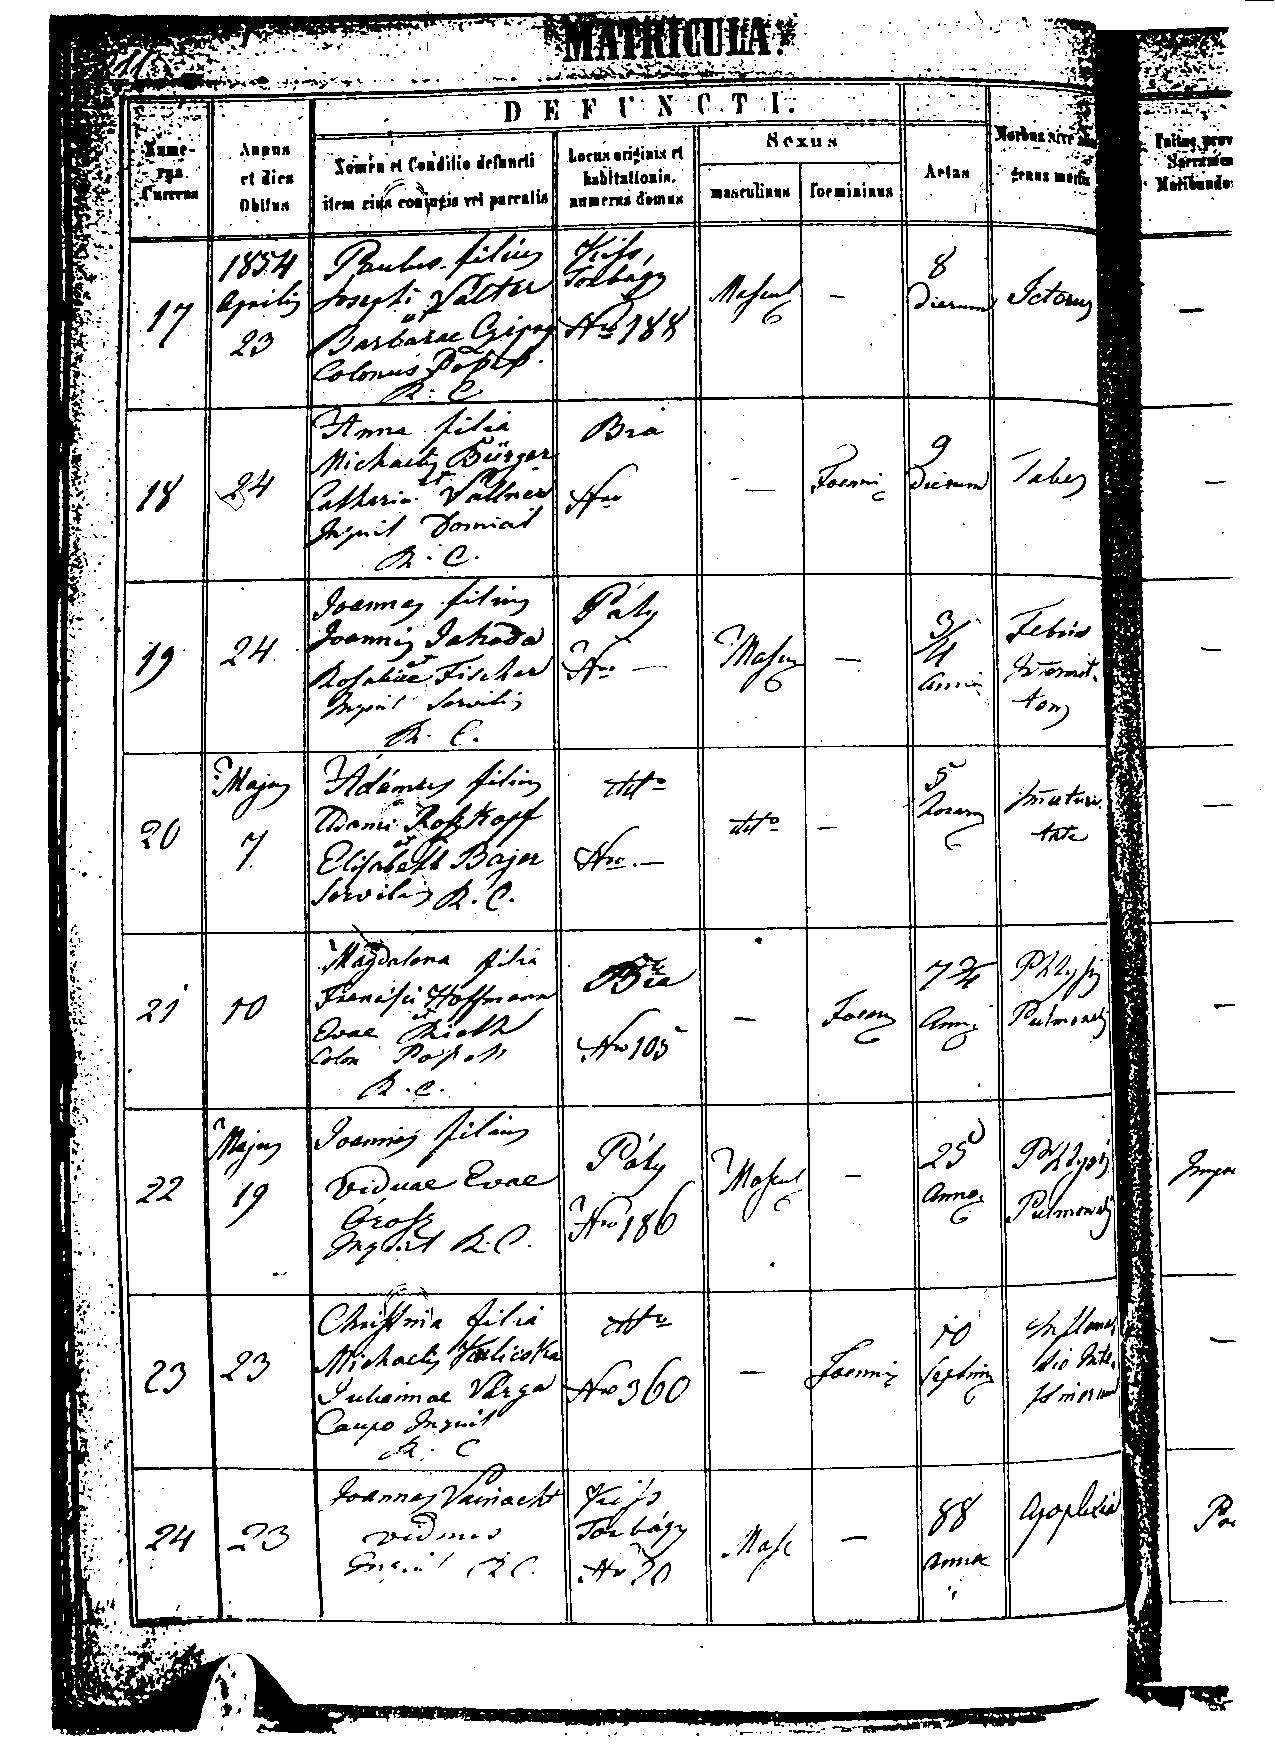 MATRICULA.
DEFUNCTI.
Nume-
rus
Currens
Annus
et dies
Obitus
Nomen et Conditio defuncti
item ejus conjugis vel parentis
Locus originis et
habitationis,
numerus domus
Sexus
masculinus
foemininus
Aetas
Morbus sive
genus mortis
17
1854
Aprilis
23
Paulus filius
Josephi Valter
et
Barbarae
Colonus
R. C.
Kiss
Torbágy
Nro 188
Mascul
—
8
Dierum
Icterus
—
18
24
Anna filia
Michaelis Bürger
et
Catharin. Vallner
Inquil Domicil
R. C.
Bia
Nro
—
Foemi
9
Dierum
Tabes
—
19
24
Joannes filius
Joannis
et
Rosaliae Fischer
Inquil Servilis
R. C.
Páty
Nro —
Mascu
—
3/4
Anni
Febris
Intermit.
tens
—
20
Majus
7
Adamus filius
Adami Roszkopf
et
Elisabeth Bajer
Servilis R. C.
dtto
Nro. —
dtto
—
5
horar
immaturi
tate
—
21
10
Magdalena filia
Francisci Hoffmann
et
Evae
Colon
R. C.
Bia
Nro 105
—
Foem
7 3/4
Anni
Phtysis
Pulmonalis
—
22
Majus
19
Joannes filius
viduae Evae
Grosz
Inquil R. C.
Páty
Nro 186
Mascul
—
25
Anno
Phtysis
Pulmonalis
23
23
Christina filia
Michaelis
Julianae Varga
Caupo Inquil
R. C
dtto
Nro 360
—
Foemin
10
Septim
Inflama
tio Inte
stinorum
—
24
23
Joannes Vainacht
viduus
Inquil R C.
Kiss
Torbágy
Nro 70
Masc
—
88
Anno
Apoplexia